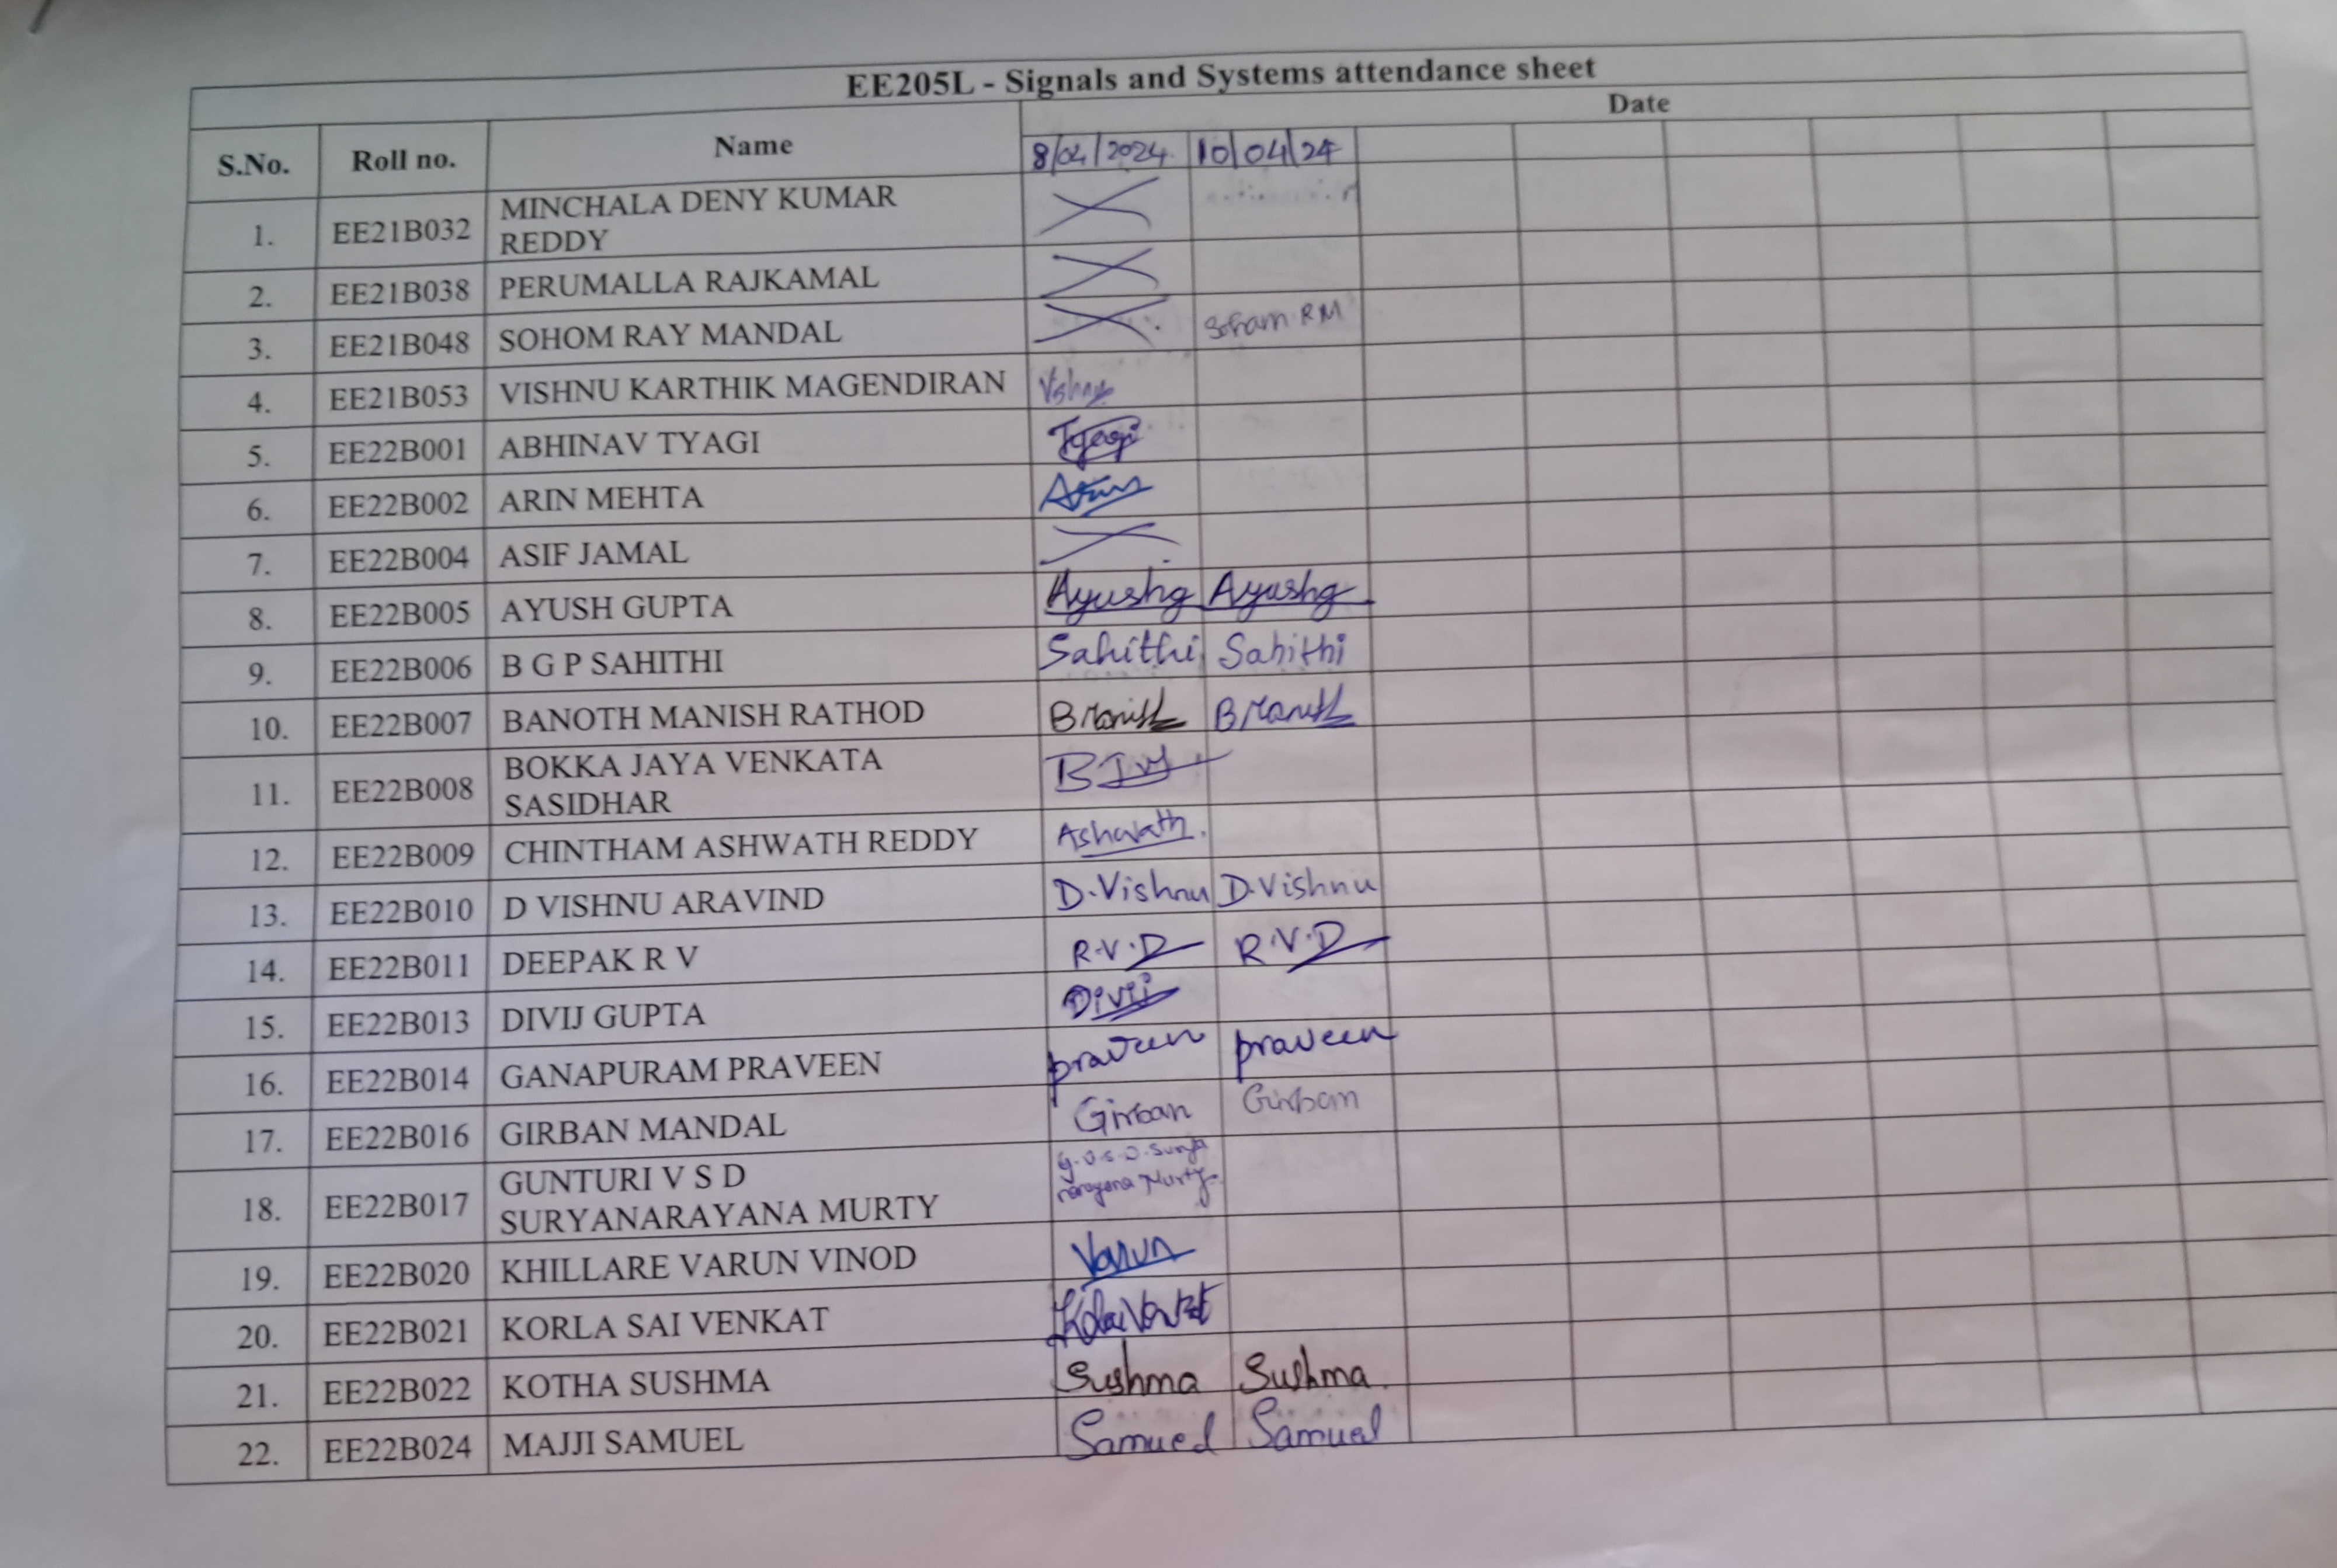 EE205L - Signals and Systems attendance sheet
S.No. Roll no. Name Date
8/04/2024 10/04/24
1. EE21B032 MINCHALA DENY KUMAR
REDDY
2. EE21B038 PERUMALLA RAJKAMAL
3. EE21B048 SOHOM RAY MANDAL Soham.RM
4. EE21B053 VISHNU KARTHIK MAGENDIRAN Vishnu
5. EE22B001 ABHINAV TYAGI Tyagi
6. EE22B002 ARIN MEHTA Arin
7. EE22B004 ASIF JAMAL
8. EE22B005 AYUSH GUPTA Ayushg Ayushg
9. EE22B006 B G P SAHITHI Sahithi Sahithi
10. EE22B007 BANOTH MANISH RATHOD B Manish B Manish
11. EE22B008 BOKKA JAYA VENKATA
SASIDHAR
12. EE22B009 CHINTHAM ASHWATH REDDY Ashwath.
13. EE22B010 D VISHNU ARAVIND D.Vishnu D.Vishnu
14. EE22B011 DEEPAK R V R.V.D R.V.D
15. EE22B013 DIVIJ GUPTA Divij
16. EE22B014 GANAPURAM PRAVEEN praveen praveen
17. EE22B016 GIRBAN MANDAL Girban Girban
18. EE22B017 GUNTURI V S D
SURYANARAYANA MURTY G.V.S.D.Surya
narayana Murty.
19. EE22B020 KHILLARE VARUN VINOD Varun
20. EE22B021 KORLA SAI VENKAT
21. EE22B022 KOTHA SUSHMA Sushma Sushma.
22. EE22B024 MAJJI SAMUEL Samuel Samuel